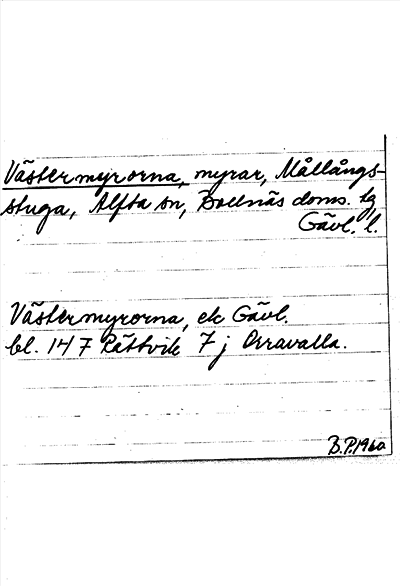 Västermyrorna, myrar, Mållångs-
stuga, Alfta sn, Bollnäs doms. tg
Gävl. l.
Västermyrorna, ek Gävl.
bl. 147 Rättvik 7 j Orravalla.
B.P. 1960